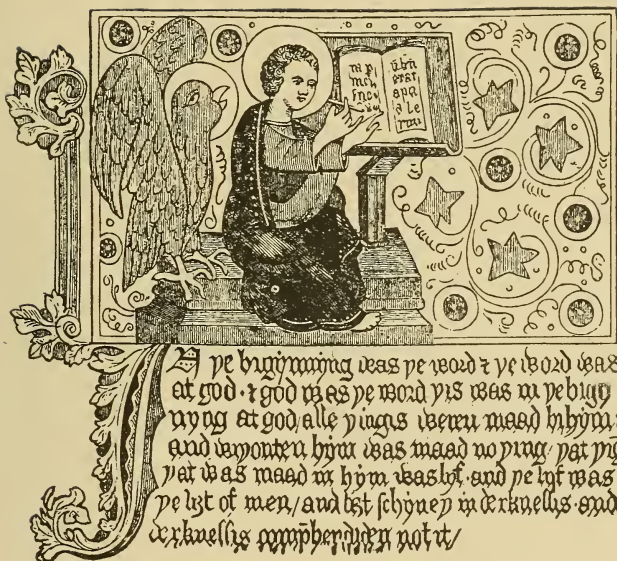 in p
mci
ū bū
erat
apd
N ye bigynnyng was ye word ⁊ ye word was
at god · ⁊ god was ye word yis was in ye bigy
nyng at god / alle yingis weren maad bi hym:
and wiyouten hym was maad no ying · yat yig
yat was maad in hym was lyf · and ye lyf was
ye liȝt of men / and liȝt schyney in derknessis · and
derknessis compheendyden not it /